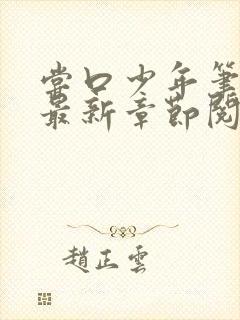 堂口少年筆
最新章節閱
趙正雲